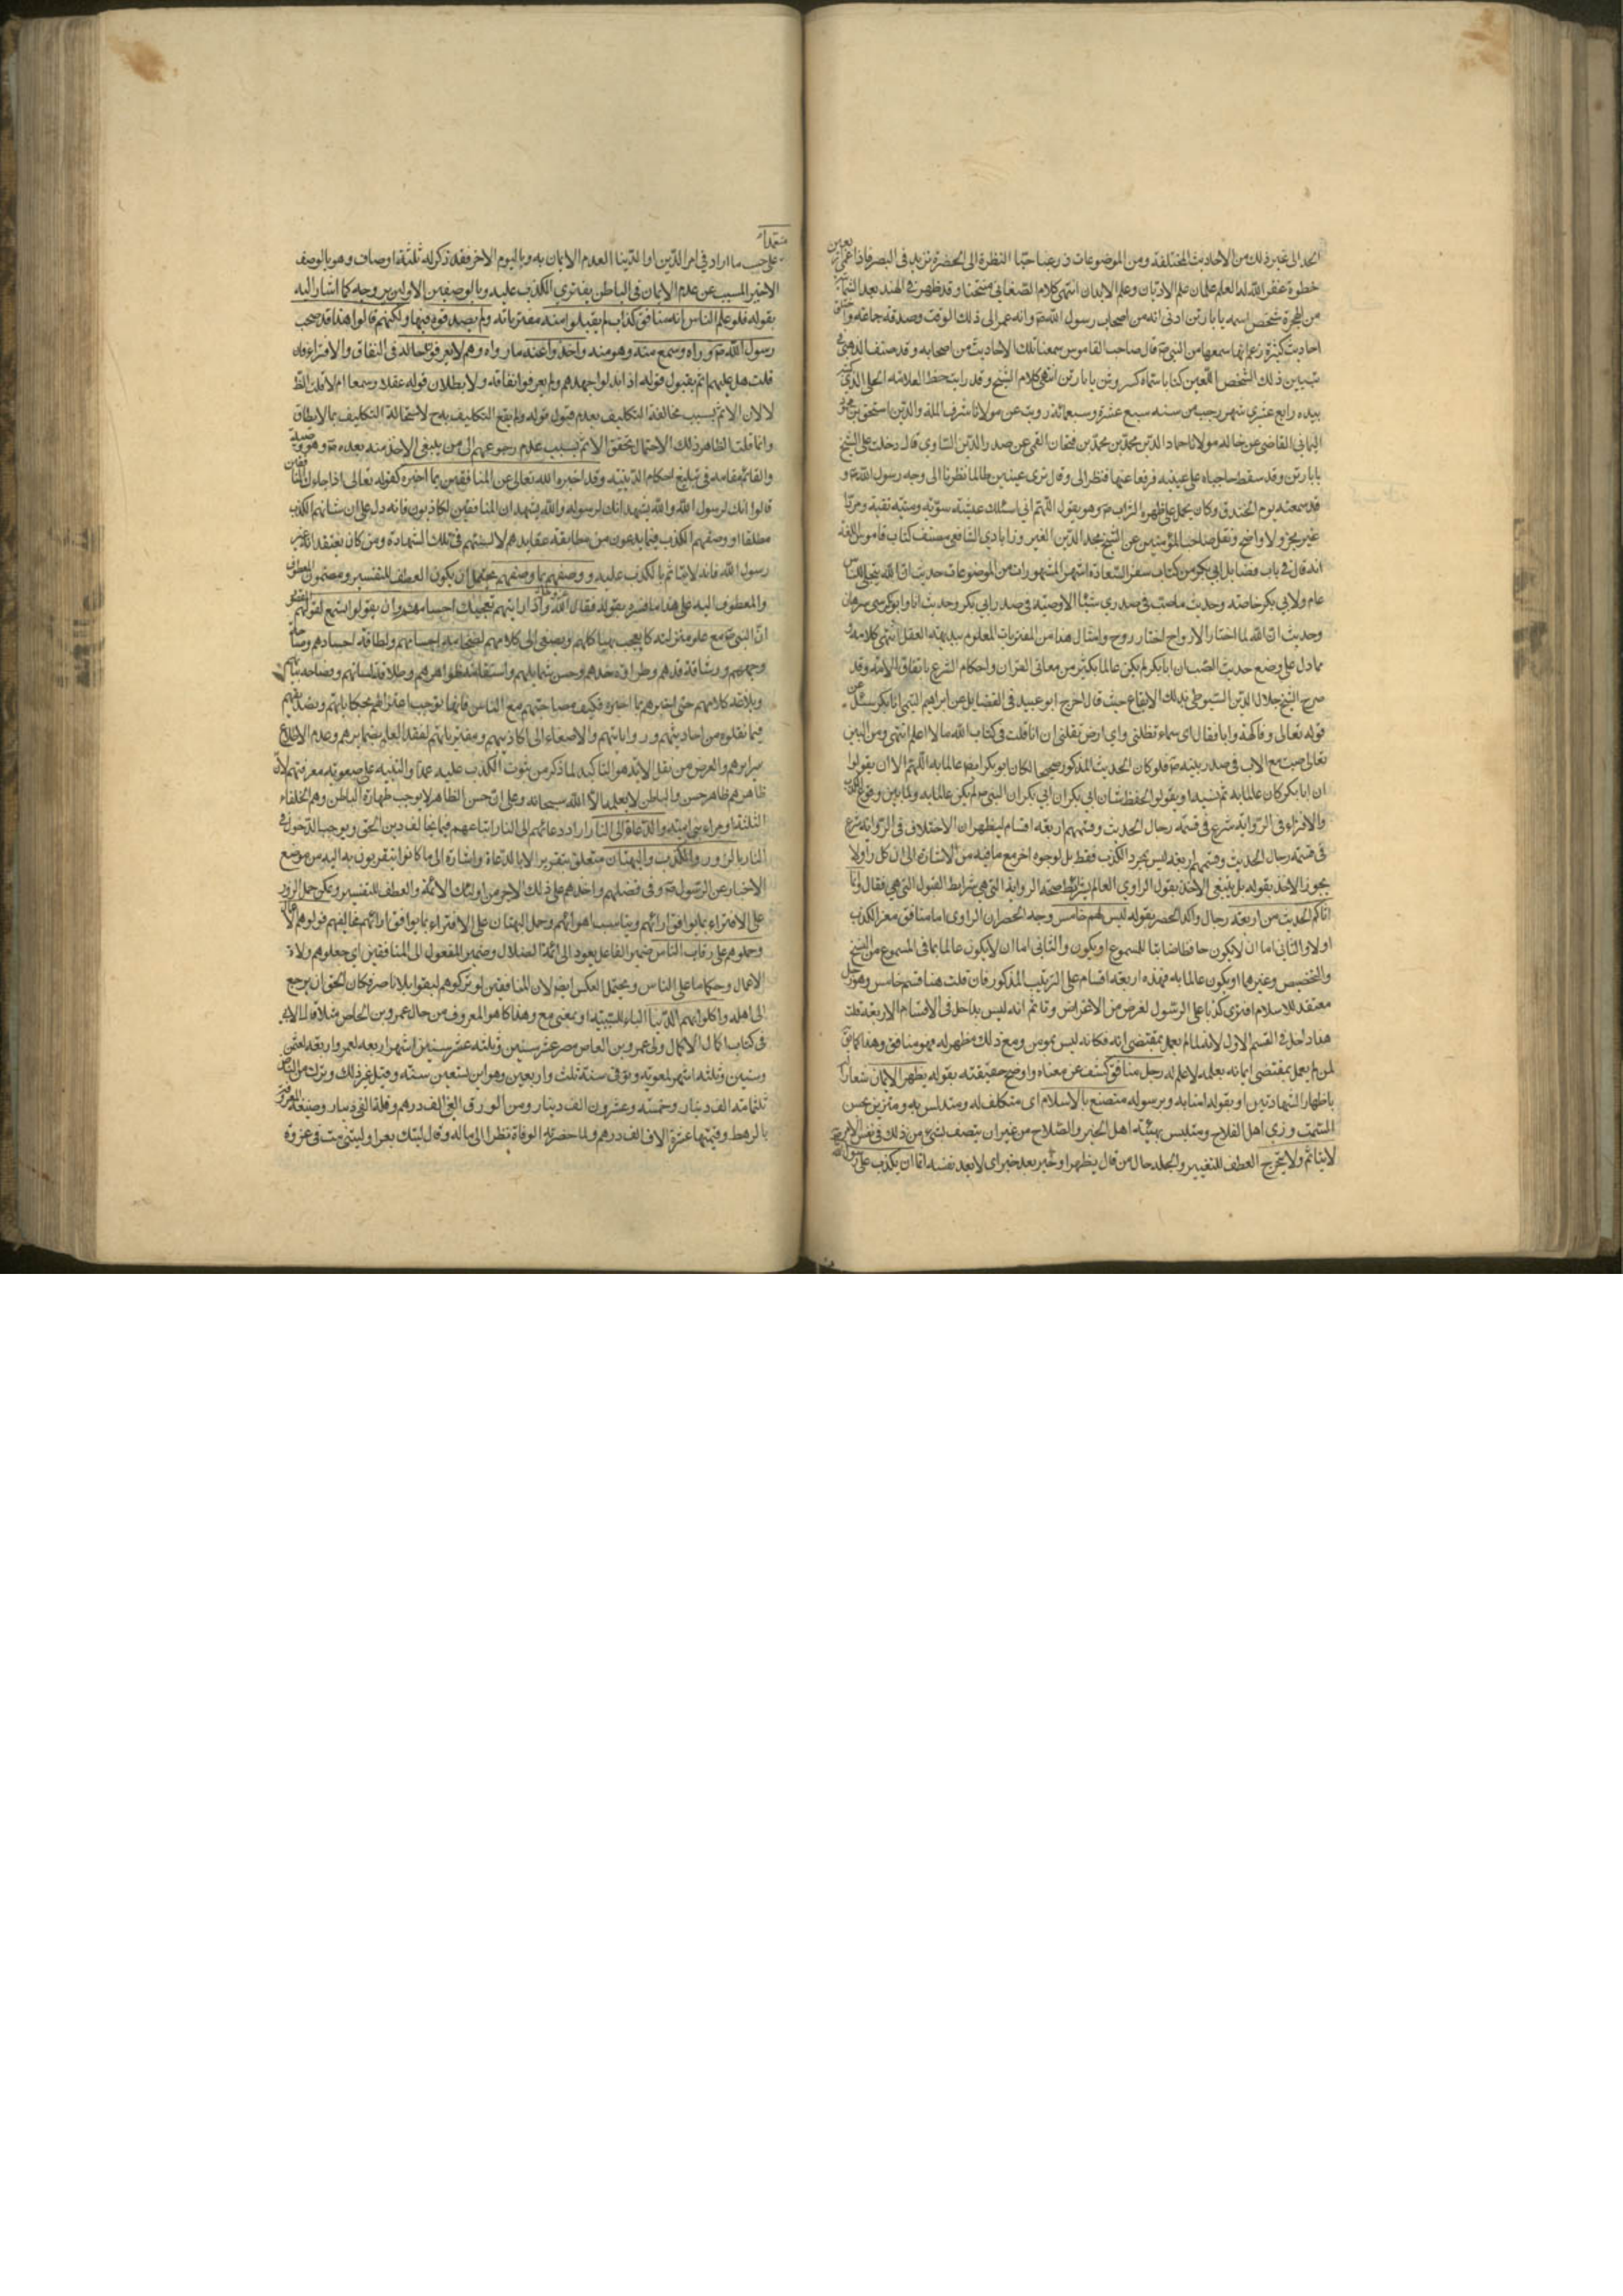 الحد الى غير ذلك من الاحاديث المختلقة ومن الموضوعات النظرة الى الخضرة تزيد في البصر
خطوة غفر الله له العلم علمان علم الاديان وعلم الابدان انتهى كلام الصغاني وقد ظهر في الهند بعد
من الهجرة شخص اسمه بابا رتن ادعى انه من اصحاب رسول الله ص وانه عمر الى ذلك الوقت وصدقه جماعة
احاديث كثيرة زعم انه سمعها من النبي ص قال صاحب القاموس سمعنا تلك الاحاديث من اصحاب اصحابه وقد صنف الذهبي
تبيين ذلك الشخص اللعين كتابا سماه كسر وثن بابا رتن انتهى كلام الشيخ وقد رايت بخط العلامة الحلي الذي
بيده رابع عشري شهر رجب من سنه سبع عشرة وسبعمائة رويت عن مولانا شرف الملة والدين اسحق بن
اليماني القاضي عن خاله مولانا عماد الدين محمد بن محمد بن فتحان القمي عن صدر الدين الساوي قال دخلت على الشيخ
بابا رتن وقد سقط حاجباه على عينيه فرفعا عنهما فنظر الى وقال ترى عينين طالما نظرتا الى وجه رسول الله ص و
قد سمعته يوم الخندق وكان يحمل على ظهره التراب ص وهو يقول اللهم اني اسئلك عيشة سوية وميتة نقية ومردا
غير مخز ولا فاضح ونقل صاحب المؤمنين عن الشيخ مجد الدين الفيروزابادي الشافعي مصنف كتاب قاموس اللغة
انه قال في باب فضايل ابي بكر من كتاب سفر السعادة اشهر المشهورات من الموضوعات حديث ان الله يتجلى للناس
عام ولابي بكر خاصة وحديث ما صب في صدري شيئا الا وصبه في صدر ابي بكر وحديث انا وابو بكر كفرسي رهان
وحديث ان الله لما اختار الارواح اختار روح وامثال هذا من المفتريات المعلوم ببديهة العقل انتهى كلامه
مما دل على وضع حديث الصب ان ابا بكر لم يكن عالما بكثير من معاني القران واحكام الشرع باتفاق الامة وقد
صرح الشيخ جلال الدين السيوطي في ذلك الاتقان حيث قال اخرج ابو عبيد في الفضايل عن ابراهيم التيمي ان ابا بكر سئل عن
قوله تعالى وفاكهة وابا فقال اي سماء تظلني واي ارض تقلني ان انا قلت في كتاب الله ما لا اعلم انتهى ومن البين
تعالى صب مع الاب في صدر نبيه ص فلو كان الحديث المذكور صحيحا لكان ابو بكر ايضا عالما به اللهم الا ان يقولوا
ان ابا بكر كان عالما به ثم نسيه او يقولوا لحفظ شان ابي بكر ان النبي ص لم يكن عالما به ولما بين وقوع الكذب
والافتراء في الرواية شرع في قسمة رجال الحديث وقسمهم اربعة اقسام ليظهر ان الاختلاف في الرواية
في قسمة رجال الحديث وقسمهم اربعة ليس بمجرد الكذب فقط بل لوجوه اخر مع ما فيه من الاشارة الى ان كل راو لا
يجوز الاخذ بقوله بل ينبغي الاخذ بقول الراوي العالم بشرايط صحة الرواية التي هي شرايط القبول التي هي فقال وانما
اتاكم الحديث من اربعة رجال واكد الحصر بقوله ليس لهم خامس وجه الحصر ان الراوي اما منافق
او لا والثاني اما ان لا يكون حافظا ضابطا للمسموع او يكون والثاني اما ان لا يكون عالما بما في المسموع من النسخ
والتخصيص وغيرهما او يكون عالما به فهذه اربعة اقسام على الترتيب المذكور فان قلت هنا قسم خامس وهو رجل
معتقد للاسلام افترى كذبا على الرسول لغرض من الاغراض وتاثم انه ليس بداخل في الاقسام الاربعة قلت
هذا داخل في القسم الاول لانه لما لم يعمل بمقتضى ايمانه فكانه ليس بمومن ومع ذلك مظهر له فهو منافق وهذا
لمن لم يعمل بمقتضى ايمانه بعلمه لا علم له رجل منافق كشف عن معناه واوضح حقيقته بقوله يظهر الايمان
باظهار الشهادتين او بقوله امنا به وبرسوله متصنع بالاسلام اي متكلف له ومتدلس به ومتزين بحسن
السمت وزي اهل الفلاح ومتلبس بهيئة اهل الخير والصلاح من غير ان يتصف بشيء من ذلك في نفس الامر
لا يتاثم ولا يتحرج العطف للتفسير والجملة حال من فاعل يظهر او خبر بعد خبر اي لا يعد نفسه اثما ان يكذب على رسول الله
متعمدا
على حسب ما اراد في امر الدين او الدنيا لعدم الايمان به وباليوم الاخر فقد ذكر له ثلثة اوصاف وهو بالوصف
الاخير المسبب عن عدم الايمان في الباطن يفتري الكذب عليه وبالوصفين الاولين يروجه كما اشار اليه
بقوله فلو علم الناس انه منافق كذاب لم يقبلوا منه مفترياته ولم يصدقوه فيها ولكنهم قالوا هذا قد صحب
رسول الله ص وراه وسمع منه وهو منه واخذوا عنه ما رواه وهم لا يعرفون حاله في النفاق والافتراء فان
قلت هل عليهم اثم بقبول قوله اذا بذلوا جهدهم ولم يعرفوا نفاقه ولا بطلان قوله عقلا وسمعا ام لا قلت الظ
لا لان الاثم بسبب مخالفة التكليف بعدم قبول قوله ولم يقع التكليف به ح لاستحالة التكليف بما لا يطاق
وانما قلت الظاهر ذلك لاحتمال تحقق الاثم بسبب عدم رجوعهم الى من ينبغي الاخذ منه بعده ص وهو وصيه
والقائم مقامه في تبليغ احكام الدينية وقد اخبره الله تعالى عن المنافقين بما اخبره كقوله تعالى اذا جاءك المنافقين
قالوا انك لرسول الله والله يشهد انك لرسوله والله يشهد ان المنافقين لكاذبون فانه دل على ان شانهم الكذب
مطلقا او وصفهم الكذب فيما يدعون من مطابقة عقايدهم لالسنتهم في تلك الشهادة ومن كان يعتقد انه غير
رسول الله فانه لا يتاثم بالكذب عليه ووصفهم بما وصفهم يحتمل ان يكون العطف للتفسير ومضمون المعطوف
والمعطوف اليه على هذا ما فسره بقوله فقال عز وجل واذا رايتهم تعجبك اجسامهم وان يقولوا تسمع لقولهم
ان النبي ص مع علو منزلته كان يعجب بهياكلهم ويصغي الى كلامهم لضخامة اجسامهم ولطافة اجسادهم
وجههم ورشاقة قدهم وطراوة خدهم وحسن شمايلهم واستقامة ظواهرهم وطلاقة لسانهم وفصاحة بيانهم
وبلاغة كلامهم حتى اخبرهم بما اخبره فكيف مصاحبتهم مع الناس فانها توجب اغترارهم بحكاياتهم وتصديقهم
فيما نقلوه من احاديثهم ورواياتهم والاصغاء الى اكاذيبهم ومفترياتهم لفقد العلم بضمايرهم وعدم الاطلاع
سرايرهم والغرض من نقل الاية هو التاكيد لما ذكر من ثبوت الكذب عليه عمدا والتنبيه على صعوبة معرفتهم لان
ظاهرهم ظاهر حسن والباطن لا يعلمه الا الله سبحانه وعلى ان حسن الظاهر لا يوجب طهارة الباطن وهم الخلفاء
الثلثة وامراء بني امية والدعاة الى النار اراد دعائهم الى النار اتباعهم فيما يخالف دين الحق ويوجب الدخول في
النار بالزور والكذب والبهتان متعلق بتقربوا لا بالدعاة واشارة الى ما كانوا يتقربون به اليه من وضع
الاخبار عن الرسول ص في فضلهم واخذهم على ذلك الاجر من اولئك الائمة والعطف للتفسير ويمكن حمل الزور
على الافتراء بما يوافق ارائهم ويناسب اهوائهم وحمل البهتان على الافتراء بما يوافق ارائهم مخالفيهم فولوهم الاعمال
وحملوهم على رقاب الناس ضمير الفاعل يعود الى ائمة الضلال وضمير المفعول الى المنافقين اي جعلوهم ولاة
الاعمال وحكاما على الناس ويحتمل العكس ايضا لان المنافقين لو تركوهم لبقوا بلا ناصر فكان الحق ان يرجع
الى اهله واكلوا بهم الدنيا الباء للسببية او بمعنى مع وهذا كما هو المعروف من حال عمرو بن العاص مثلا قال
في كتاب اكمال الاكمال ولى عمرو بن العاص مصر عشر سنين وثلثة اشهر اربعة لعمر واربعة لعثمن
وسنتين وثلثة اشهر لمعوية وتوفى سنة ثلث واربعين وهو ابن تسعين سنة وقيل غير ذلك وترك من الناض
ثلثمائة الف دينار وخمسة وعشرون الف دينار ومن الورق الفي الف درهم وغلة الفي دينار وضيعة المعروفة
بالرهط وقيمتها عشرة الاف الف درهم ولما حضرته الوفاة نظر الى ماله وقال ليتك بعرا وليتني مت في غزوة